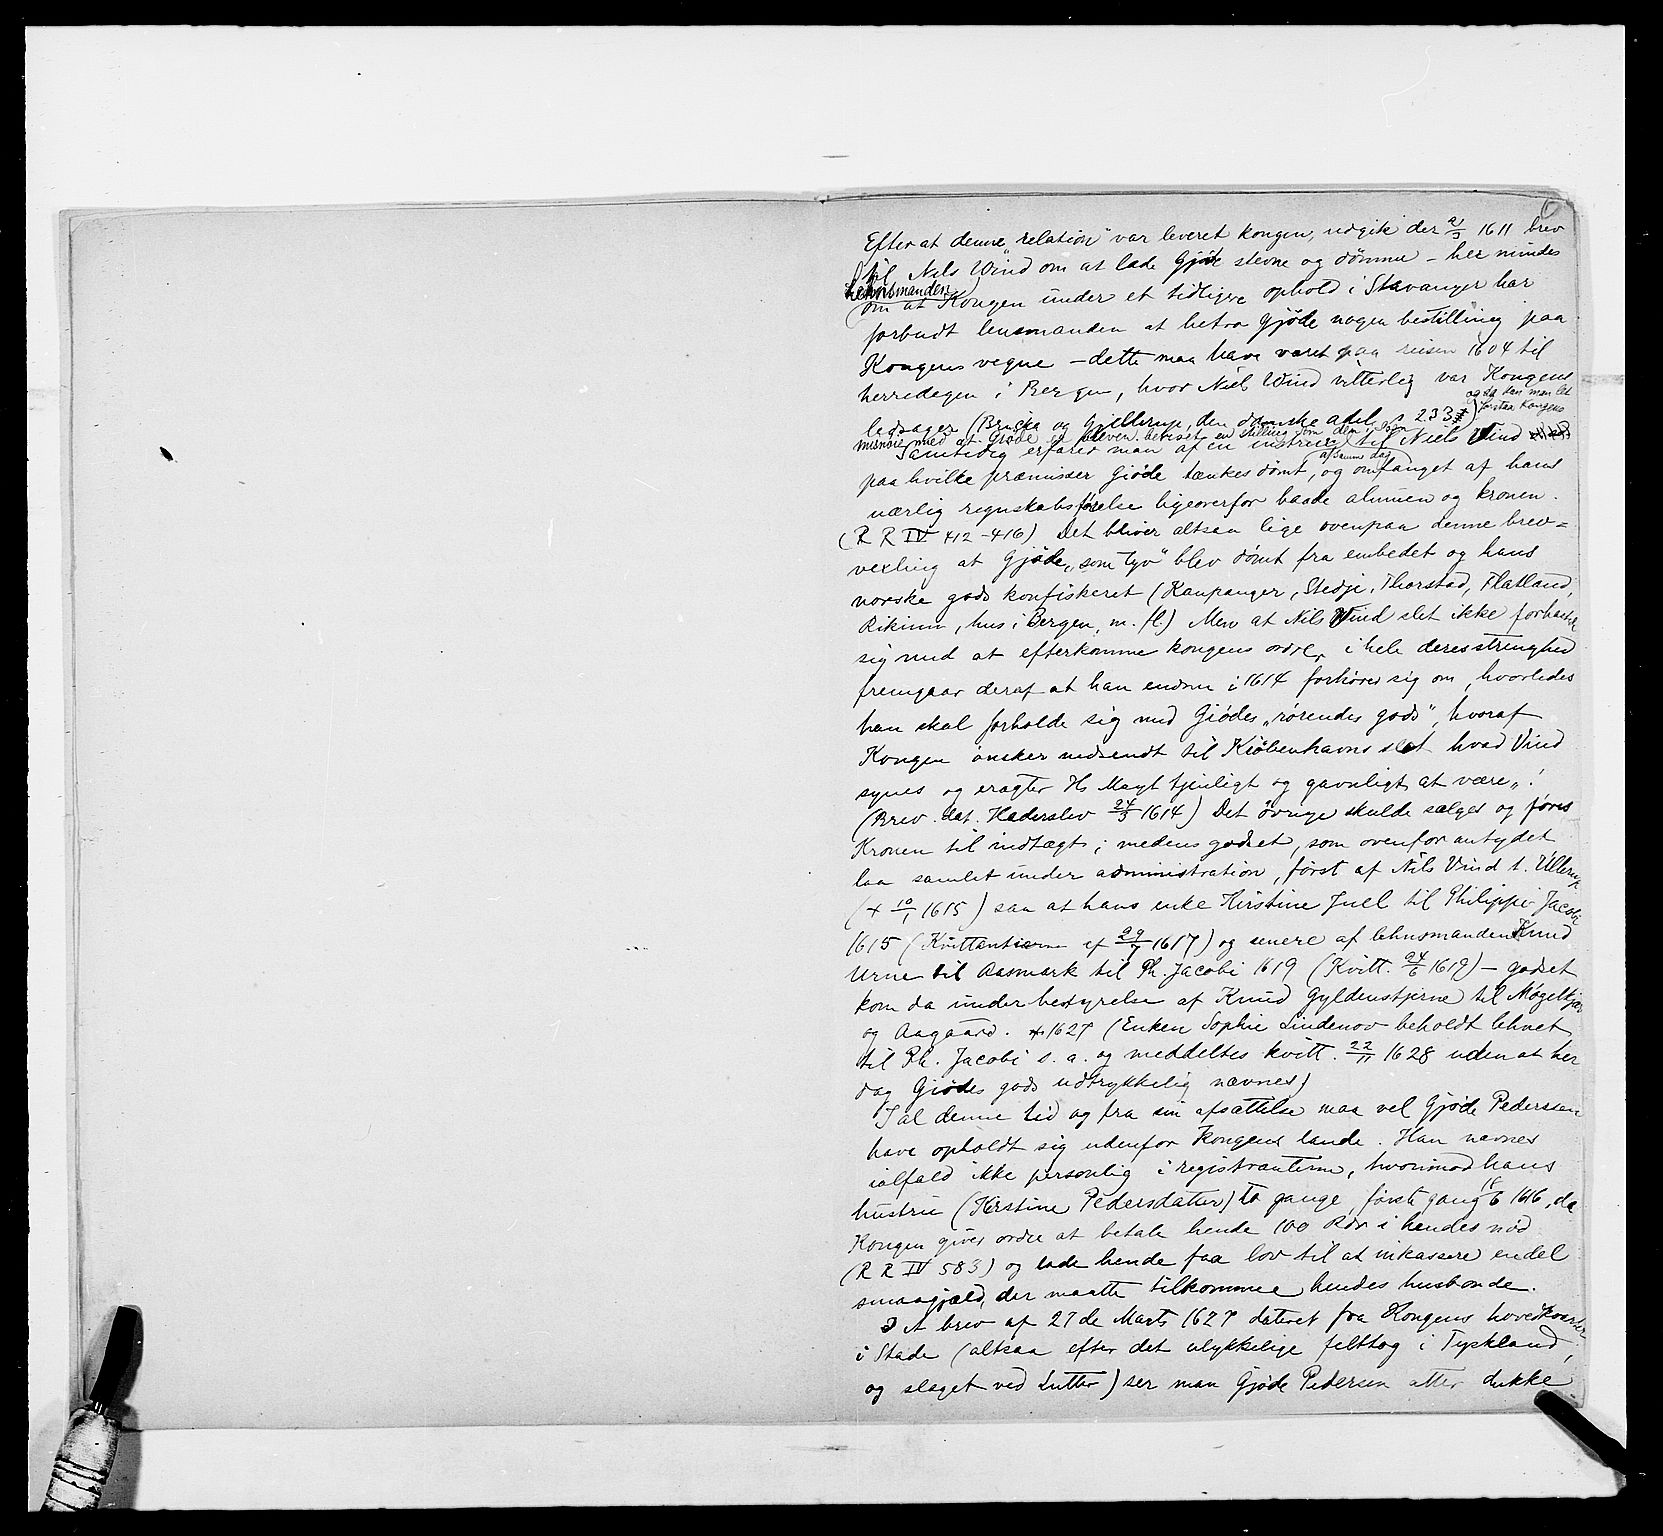 Efter at denne "relation" var leveret kongen, udgik der 21/3 1611 brev
til Nils Wind om at lade Gjøde stevne og dömme – her mindes
lensmanden
om at Kongen under et tidligere ophold i Stavanger har
forbudt lensmanden at betro Gjöde nogen bestilling paa
Kongens vegne – dette maa have været paa reisen 1604 til
herredagen i Bergen, hvor Niels Wind vitterlig var Kongens
og da kan man let
forstaa Kongens
ledsager (Bricka og Gjellerup, den danske adel, s 233)
misnöie med at Gjøde er bleven betroet en stilling som den
Samtidig erfarer man af en instrux til Niels Wind
af samme dag
paa hvilke præmisser Gjöde tænkes dömt, og omfanget af hans
uærlig regnskabsførelse ligeoverfor baade almuen og kronen.
(R R IV 412-416) Det bliver altsaa lige ovenpaa denne brev=
vexling at Gjöde "som tyv" blev dömt fra embedet og hans
norske gods konfiskeret (Kaupanger, Stedje, Thorstad, Flatland,
Rikinn, hus i Bergen, m. fl.) Men at Nils Wind slet ikke forhastet
sig med at efterkomme kongens ordrer i hele deres strenghed
fremgaar deraf at han endnu i 1614 forhörer sig om, hvorledes
han skal forholde sig med Giödes "rørendes gods", hvoraf
Kongen önsker nedsendt til Kiöbenhavns slot hvad Vind
synes og eragter Hs Mayt tjenligt og gavnligt at være"!
(Brev. dat. Haderslev 24/3 1614) Det övrige skulde sælges og føres
Kronen til indtægt; medens godset, som ovenfor antydet
laa samlet under administration, først af Nils Vind t. Ullerup
(+ 10/1 1615) saa at hans enke Kirstine Juel til Philippi Jacobi
1615 (Kvittantserne af 29/7 1617) og senere af lehnsmanden Knud
Urne til Aasmark til Ph. Jacobi 1619 (Kvitt. 24/6 1619) – godset
kom da under bestyrelse af Knud Gyldenstjerne til Møgelkjær
og Aagaard. + 1627 (Enken Sophie Lindenov beholdt lehnet
til Ph. Jacobi s. a. og meddeltes kvitt. 22/11 1628 uden at her
dog Giödes gods udtrykkelig nævnes)
I al denne tid og fra sin afsættelse maa vel Gjøde Pederssen
have opholdt sig udenfor kongens lande. Han nævnes
ialfald ikke personlig i registranterne, hvorimod hans
hustru (Kirstine Pedersdatter) to gange, første gang 18/6 1616, da
Kongen giver ordre at betale hende 100 Rdr i hendes nöd
(R R IV 583) og lade hende faa lov til at inkassere endel
smaagjæld, der maatte tilkomme hendes husbonde.
I et brev af 27de Marts 1627 dateret fra Kongens hovedkvarter
i Stade (altsaa efter det ulykkelige felttog i Tyskland,
og slaget ved Lutter) ser man Gjöde Pedersen atter dukke